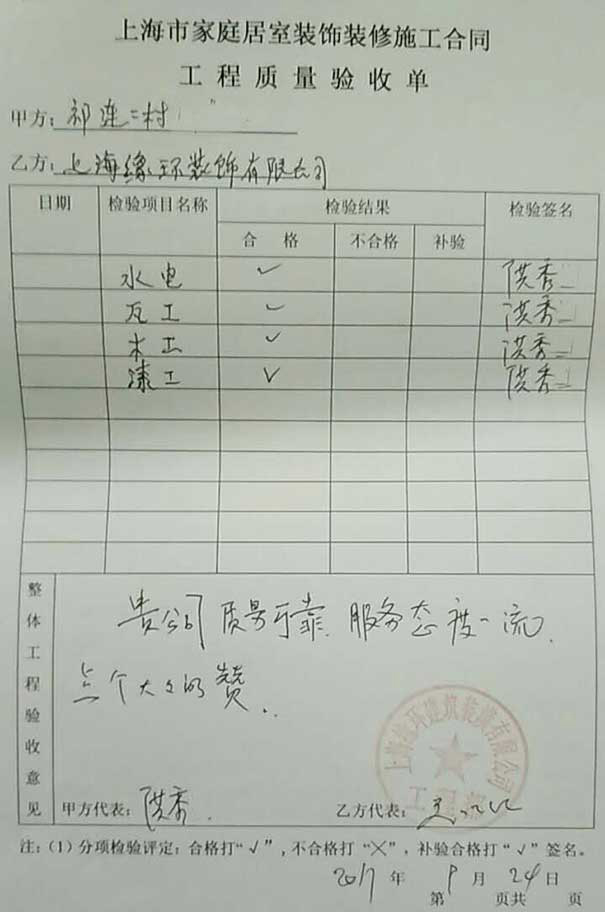 上海市家庭居室装饰装修施工合同
工程质量验收单
甲方：祁连二村
乙方：上海缘环装饰有限公司
日期 检验项目名称 检验结果 检验签名
合格 不合格 补验
水电 ✓ 洪秀
瓦工 ✓ 洪秀
木工 ✓ 洪秀
漆工 ✓ 洪秀
整体工程验收意见
贵公司质量可靠 服务态度一流.
点个大大的赞..
环建筑装潢有限公司
甲方代表：洪秀. 乙方代表：
注：（1）分项检验评定：合格打“√”，不合格打“╳”，补验合格打“√”签名。
2017年9月24日
第 页共 页